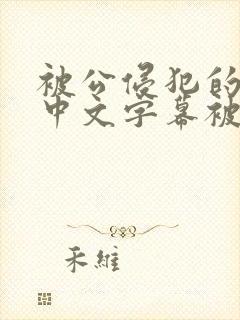 被公侵犯的
中文字幕被
禾維